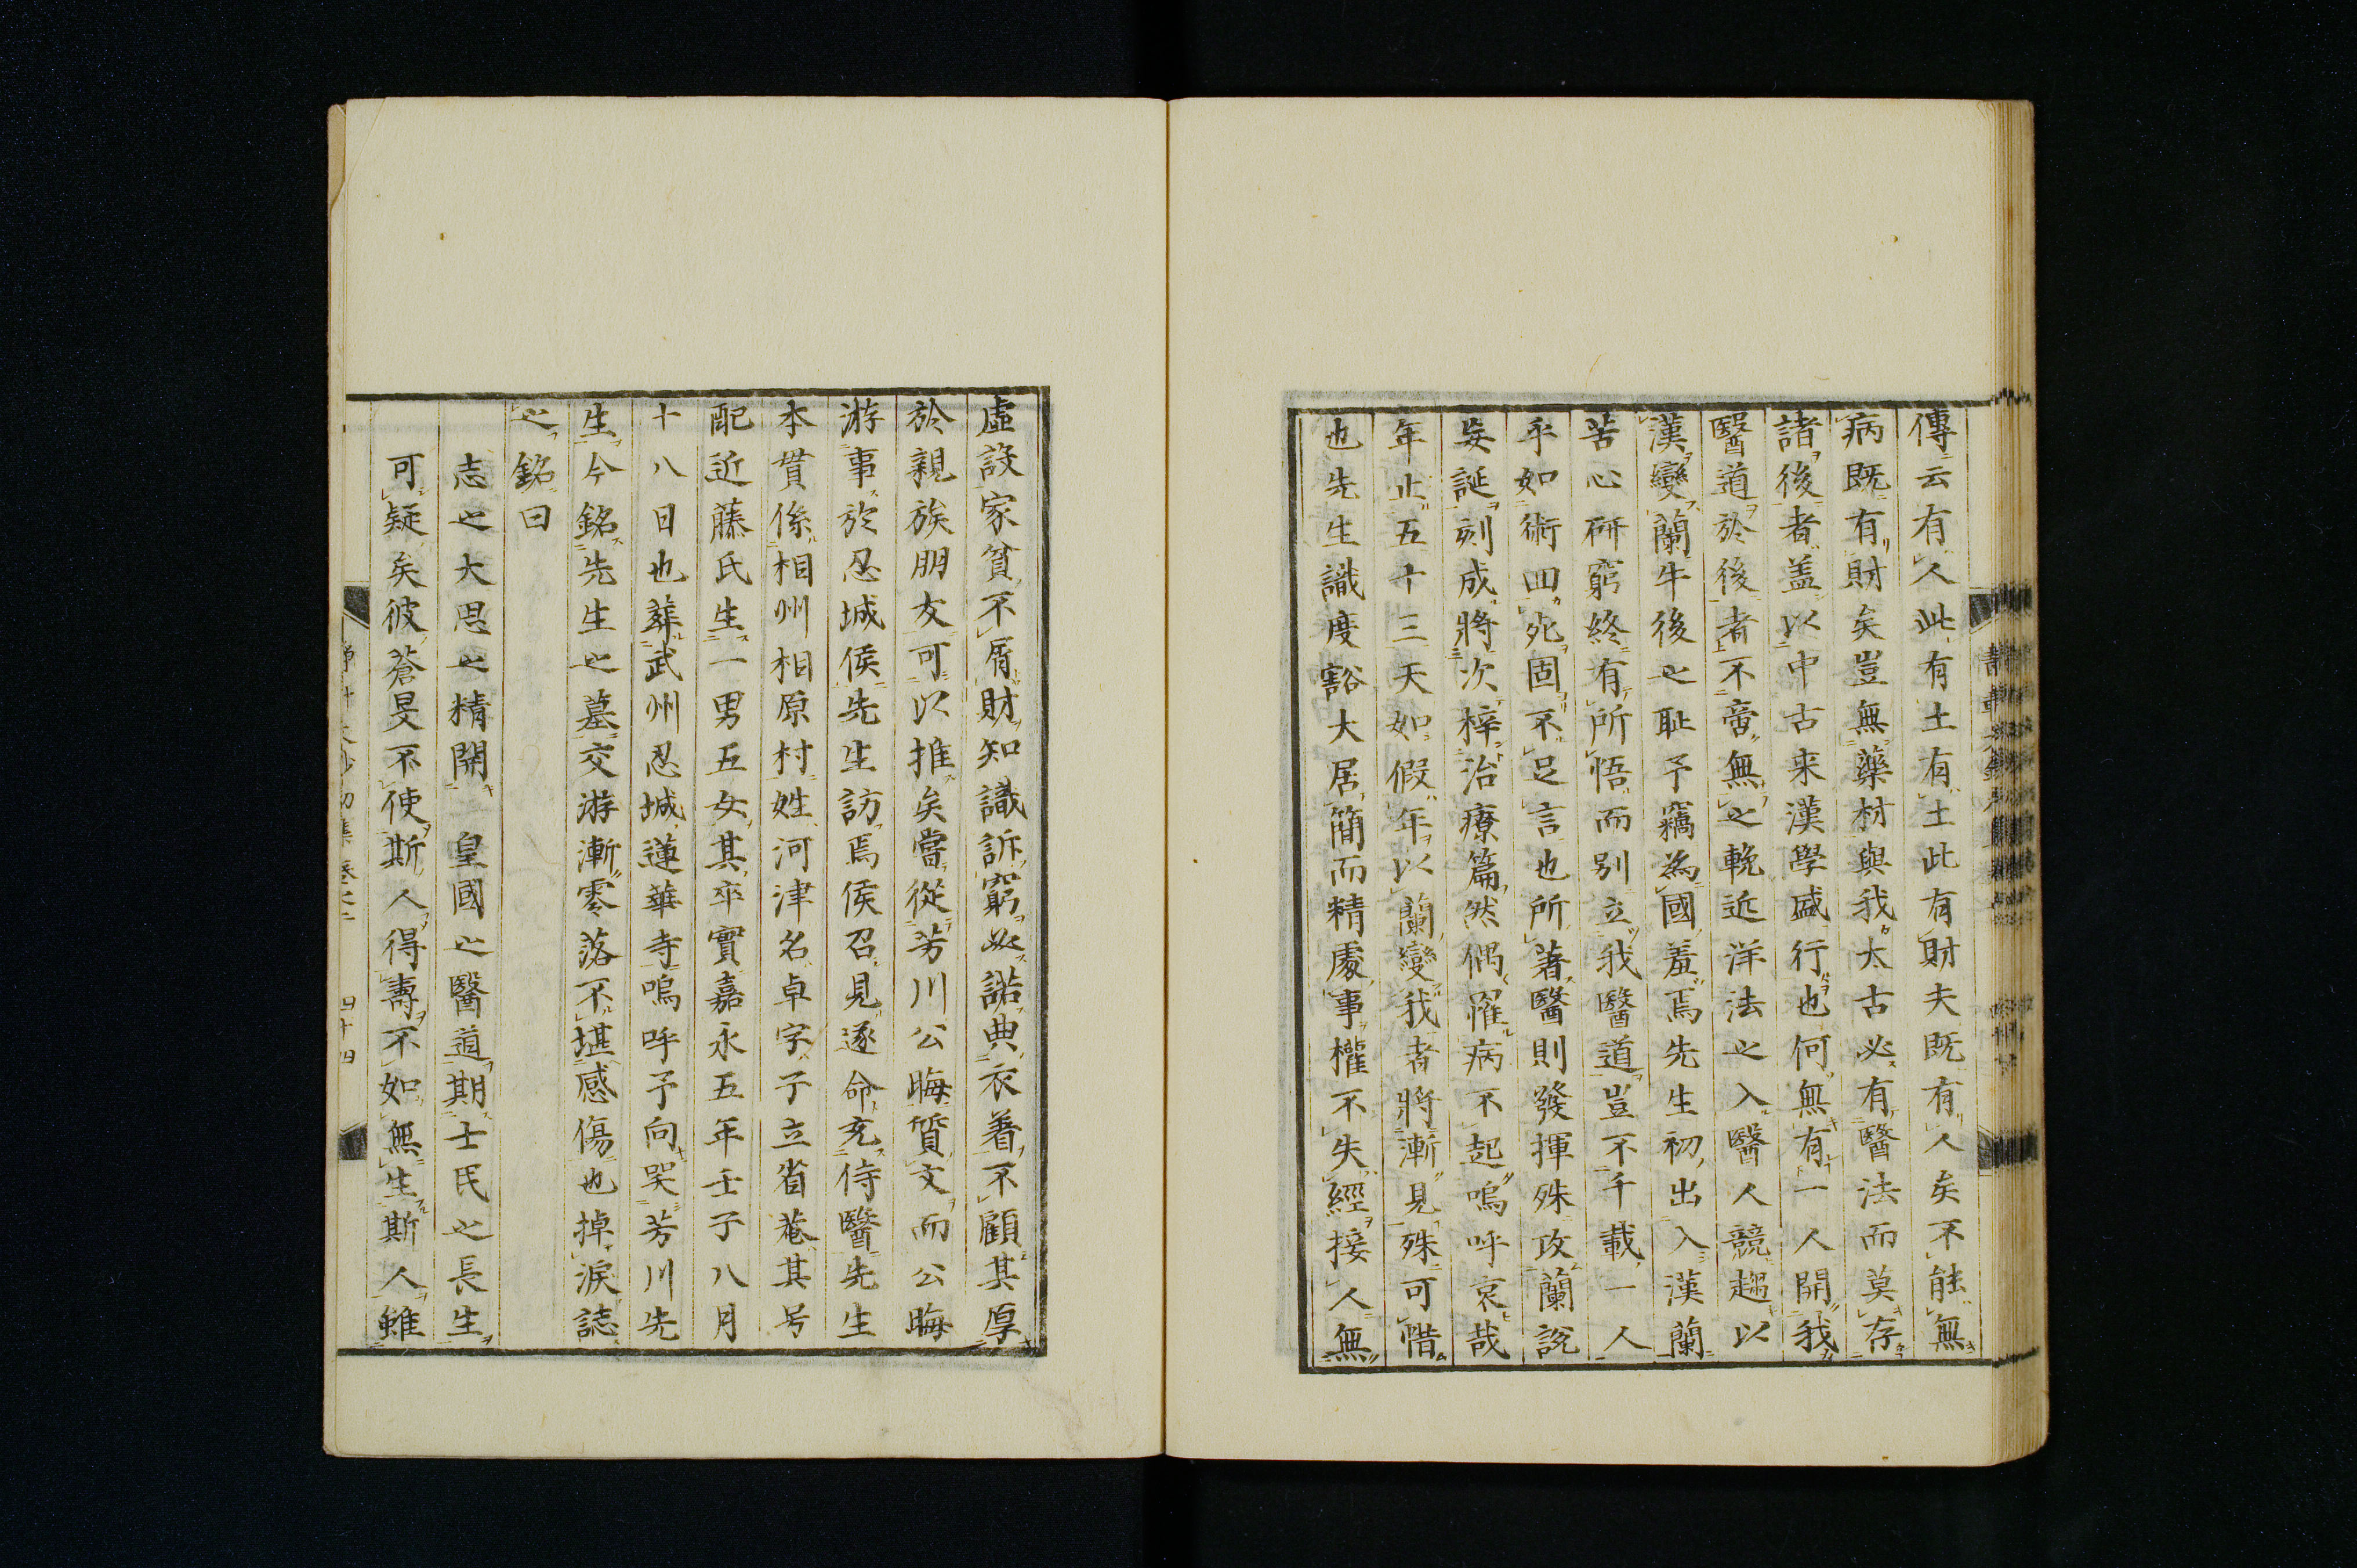 傳云有人此有土有土此有財夫既有人矣不能無
病既有財矣豈無藥材與我太古必有醫法而莫存
諸後者盖以中古来漢學盛行也何無有一人開我
醫道於後者不啻無之輓近洋法之入醫人競趨以
漢變蘭牛後之耻予竊為國羞焉先生初出入漢蘭
苦心研窮終有所悟而别立我醫道豈不千載一人
乎如術囬死固不足言也所著醫則發揮殊攻蘭説
妄誕刻成將次梓治療篇然偶罹病不起嗚呼哀哉
年止五十三天如假年以蘭變我者將漸見殊可惜
也先生識度豁大居簡而精處事權不失經接人無
虛設家貧不屑財知識訴窮必諾典衣着不顧其厚
於親族朋友可以推矣嘗從芳川公晦質文而公晦
游事於忍城侯先生訪焉侯召見遂命充侍醫先生
本貫係相州相原村姓河津名卓字子立省菴其号
配近藤氏生一男五女其卒實嘉永五年壬子八月
十八日也葬武州忍城蓮華寺嗚呼予向哭芳川先
生今銘先生之墓交游漸零落不堪感傷也掉淚誌
之銘曰
志之大思之精開皇國之醫道期士民之長生
可疑矣彼蒼旻不使斯人得壽不如無生斯人雖
四十四